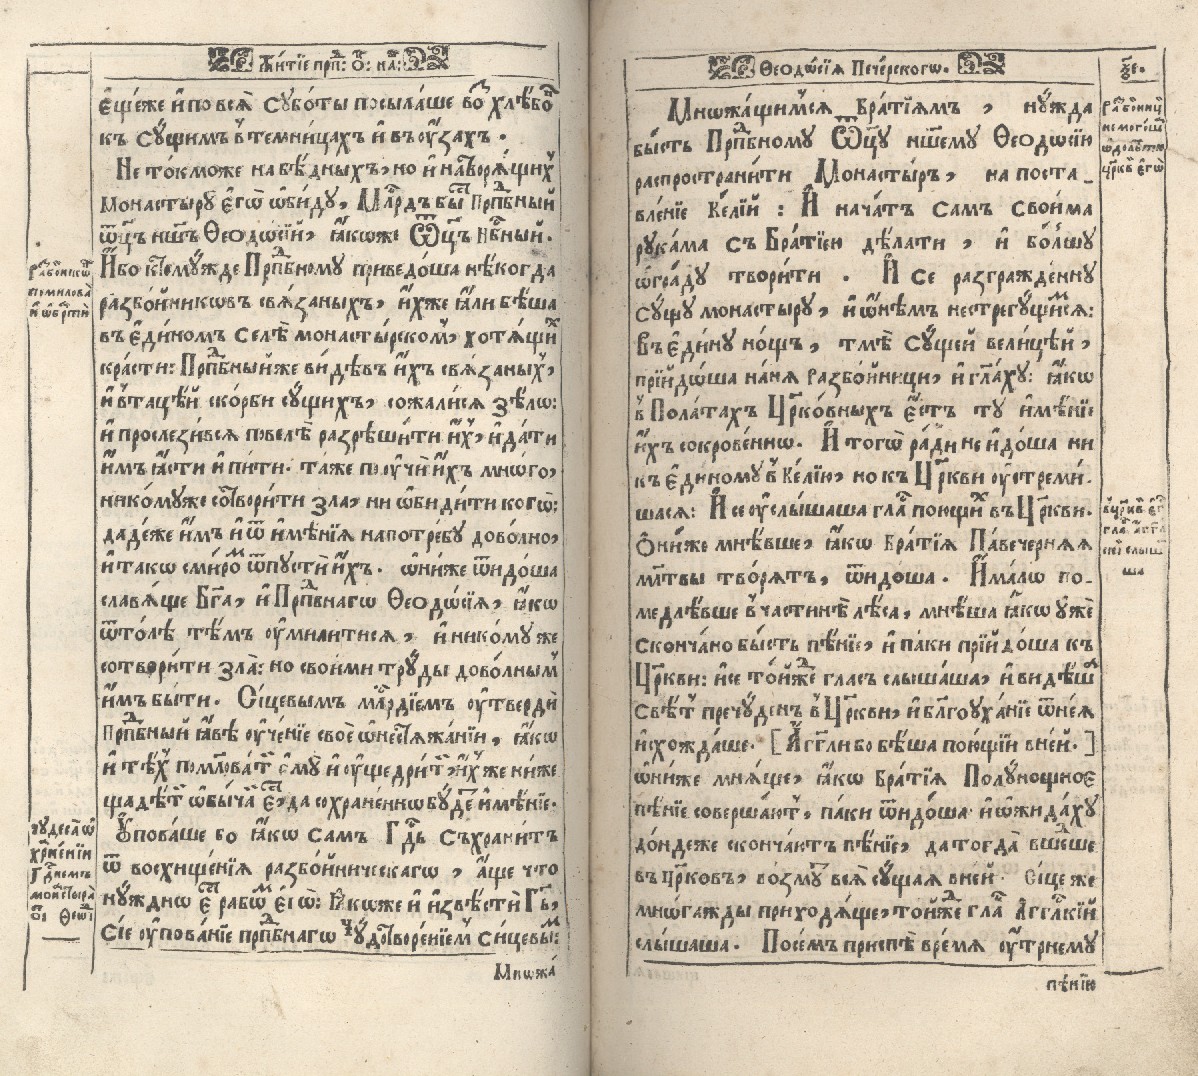 Житїе прпⷣ: ѻ҃: на́:
Е҆ще́же и҆ по всѧ̀ Сꙋбѡ́ты посыла́ше во́ⷥ хлѣ́боⷡ
къ Сꙋ́щимъ в̾ темни́цахъ и҆ въ оу҆́захъ.
Не то́кможе на бѣ́дныхъ, но и҆ на́творѧ́щиⷯ
Монастырꙋ̀ Є҆гѡ̀ ѡ҆би́дꙋ, Млⷭ҇рдъ бы́ⷭ Прпⷣбный
Ѿц҃ъ на́шъ Ѳеодѡ́сїй, ꙗ҆́коже Ѿц҃ъ Нбⷭ҇ный.
И҆́бо к̾ семꙋ́жде Прпⷣбномꙋ приведо́ша нѣ́когда
разбо́йникѡвъ свѧ́заныхъ, и҆́хже ꙗ҆́ли бѣ́ша
въ Є҆ди́номъ Селѣ̀ монасты́рскомъ, хотѧ́щиⷯ
кра́сти: Прпⷣбный же ви́дѣвъ и҆́хъ свѧ́заныхъ,
и҆ в̾ таце́й ско́рби сꙋ́щихъ, сожали́сѧ ѕѣ́лѡ:
и҆ прослези́всѧ повелѣ̀ разрѣши́ти и҆́хъ, и҆ да́ти
и҆̀мъ ꙗ҆́сти и҆ пи́ти. та́же поꙋчѝ и҆́хъ мнѡ́го,
нико́мꙋже сотвори́ти зла̀, ни ѡ҆би́дити когѡ̀:
даде́же и҆̀мъ и҆ ѿ и҆мѣ́нїѧ на потре́бꙋ дово́лно,
и҆ та́кѡ сми́роⷨ ѿпꙋстѝ и҆́хъ. ѡ҆ни́же ѿидо́ша
сла́вѧще Бг҃а, и҆ Прпⷣбнагѡ Ѳеодѡ́сїѧ, ꙗ҆́кѡ
ѿто́лѣ тѣ́мъ оу҆мили́тисѧ, и҆ нико́мꙋже
сотвори́ти зла̀: но свои́ми трꙋды̀ дово́лныⷨ
и҆̀мъ бы́ти. Си́цевымъ млⷭ҇рдїемъ оу҆твердѝ
Прпⷣбный ꙗ҆́вѣ оу҆че́нїе своѐ ѡ҆ нестѧжа́нїи, ꙗ҆́кѡ
и҆ тѣ́хъ помлⷭ҇ова́тъ є҆мꙋ̀ и҆ оу҆ще́дритъ, и҆́хже ниже
щадѣ́тъ ѡ҆бы́чай є҆́сть, да сохране́ннѡ бꙋ́детъ и҆мѣ́нїе.
Оу҆пова́ше бо ꙗ҆́кѡ Са́мъ Гд҇ь Съхрани́тъ
ѿ восхище́нїѧ разбо́йническагѡ, а҆́ще что
нꙋ́ждно є҆́сть рабѡ́мъ є҆гѡ̀: Ꙗ҆́коже и҆ и҆звѣстѝ Гь҇,
Сїѐ оу҆пова́нїе прпⷣбнагѡ Чꙋдотворе́нїемъ Си́цевыⷨ:
Мнѡжа́
Разбо́йникѡⷡ
помилова̀
и҆ ѡ҆братѝ
Чꙋдеса̀ ѡ҆
хране́нїи
Гд҇немъ
монастырѧ̀
пⷣ: Ѳеоⷣ:
Ѳеодѡ́сїѧ Пече́рскогѡ.
ѯ҃е.
Мнѡжа́щимсѧ Бра́тїѧмъ, нꙋ́жда
бы́сть Прпⷣбномꙋ Ѿц҃ꙋ на́шемꙋ Ѳеодѡ́сїю
распространи́ти Монасты́ръ, на поста-
вле́нїе Ке́лїй: И҆ нача́тъ са́мъ Свои́ма
рꙋка́ма съ Бра́тїею дѣ́лати, и҆ бо́лшꙋю
ѡ҆гра́дꙋ твори́ти. И҆ се разгражде́ннꙋ
сꙋ́щꙋ монастырꙋ̀, и҆ ѡ҆́нѣмъ нестрегꙋ́щимсѧ:
Въ Є҆ди́нꙋ но́щъ, тмѣ̀ Сꙋ́щей вели́цѣй,
прїйдо́ша на нѧ̀ разбо́йници, и҆ гл҃ахꙋ: ꙗ҆́кѡ
в̾ Пола́тахъ Цр҃ко́вныхъ є҆́стъ тꙋ̀ и҆мѣ́нїе
и҆́хъ сокрове́ннѡ. И҆ тогѡ̀ ра́ди не и҆до́ша ни
къ є҆ди́номꙋ в̾ ке́лїю, но къ Цр҃кви оу҆стреми́-
шасѧ: И҆ се оу҆слы́шаша гла́съ пою́щиⷯ въ Цр҃кви.
Ѻ҆ни́же мнѣ́вше, ꙗ҆́кѡ бра́тїѧ Паве́чернѧѧ
мл҃твы творѧ́тъ, ѿидо́ша. И҆ ма́лѡ по-
медлѣ́вше в̾ ча́стинѣ лѣ́са, мнѣ́ша ꙗ҆́кѡ оу҆жѐ
сконча́но бы́сть пѣ́нїе, и҆ па́ки прїйдо́ша къ
Цр҃кви: и҆ се то́йжде гла́съ слы́шаша, и҆ ви́дѣша
Свѣ́тъ пречꙋ́денъ в̾ Цр҃кви, и҆ бл҃гоꙋха́нїе ѿ неѧ̀
и҆схожда́ше. [А҆́гг҃ли бо бѣ́ша пою́щїи в̾ не́й.]
ѡ҆ни́же мнѧ́ще, ꙗ҆́кѡ бра́тїѧ Полꙋ́нощное
пѣ́нїе соверша́ютъ, па́ки ѿидо́ша и҆ ѡ҆жида́хꙋ
до́ндеже сконча́ютъ пѣ́нїе, да тогда̀ вше́дше
въ Цр҃ковь, во́змꙋтъ всѧ̀ сꙋ́щаѧ в̾ не́й. Си́це же
мнѡ́гажды приходѧ́ще, то́йжде гла́съ А҆́гг҃лский
слы́шаша. Посе́мъ приспѣ̀ вре́мѧ оу҆́трнемꙋ
пѣ́нїю
Разбо́йниц
не могѡ́ша
ѡ҆долѣ́ти
цр҃кви є҆гѡ̀
в̾ цр҃кви є҆гѡ̀
гла́съ а҆́гг҃л
скїй слы́ш
ша